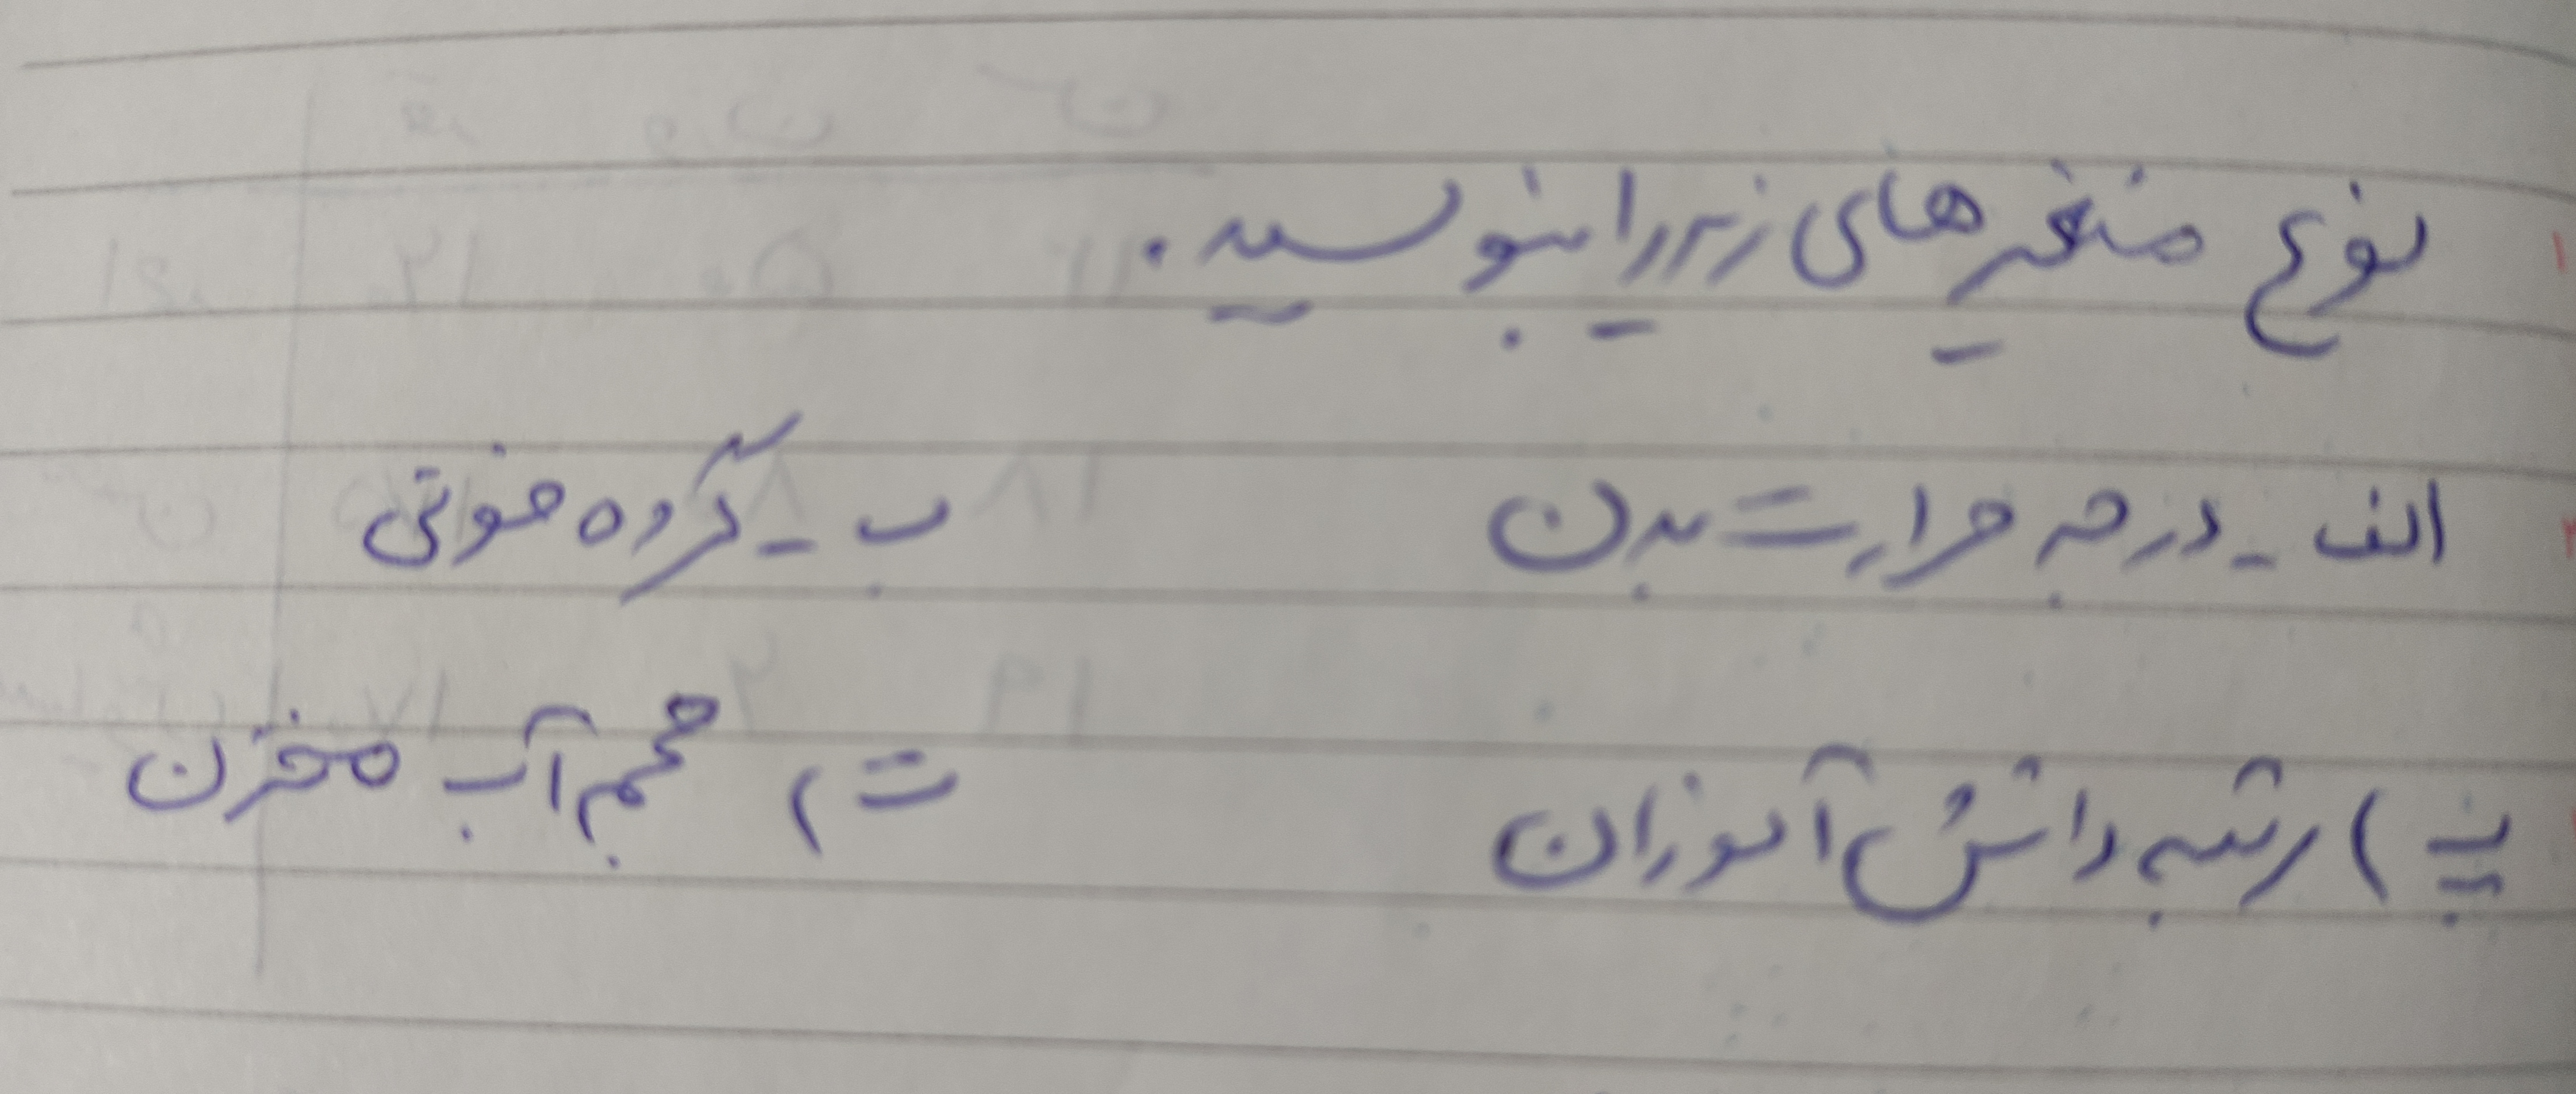 نوع متغیرهای زیر را بنویسید.
الف - درجه حرارت بدن ب - گروه خونی
پ) رتبه دانش آموزان ت) حجم آب مخزن